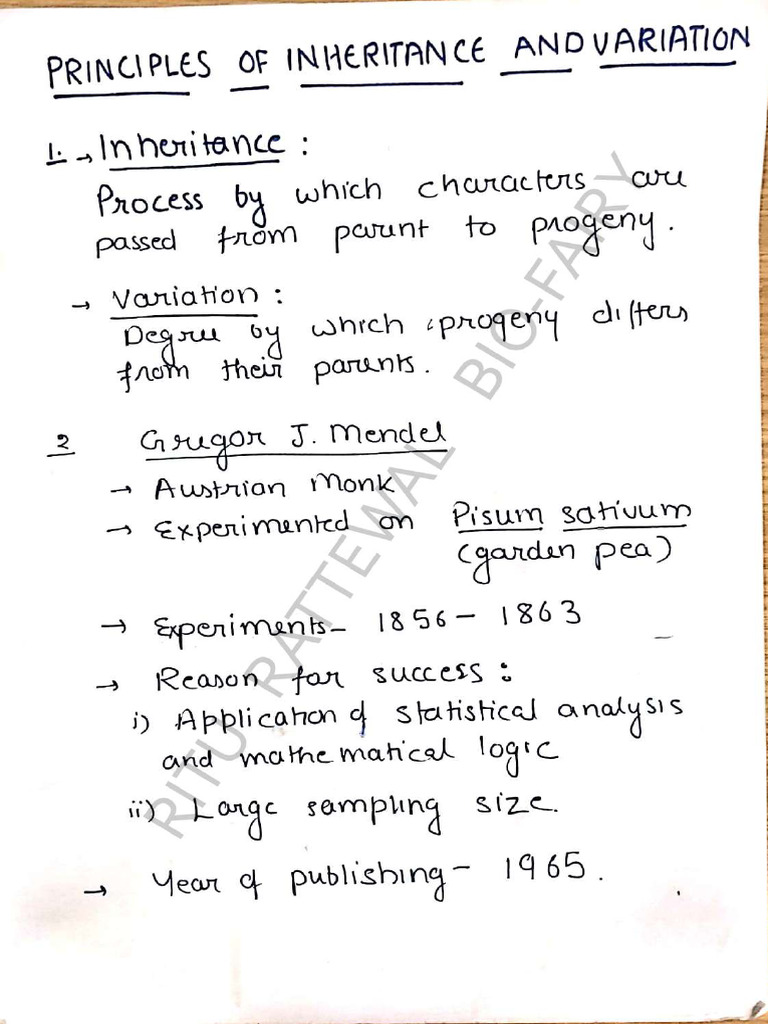 PRINCIPLES OF INHERITANCE AND VARIATION
1. → Inheritance :
Process by which characters are
passed from parent to progeny.
→ Variation :
Degree by which progeny differs
from their parents.
2 Gregor J. Mendel
→ Austrian Monk
→ Experimented on Pisum sativum
(garden pea)
→ Experiments- 1856 - 1863
→ Reason for success :
i) Application of statistical analysis
and mathematical logic
ii) Large sampling size.
→ Year of publishing - 1965.
RITU RATTEWAL BIO-FAIRY